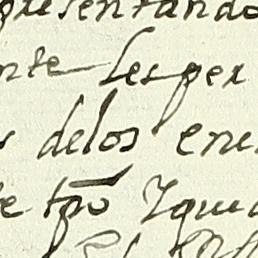 presentando
nte les per
s delos ene
e tpō Iqua